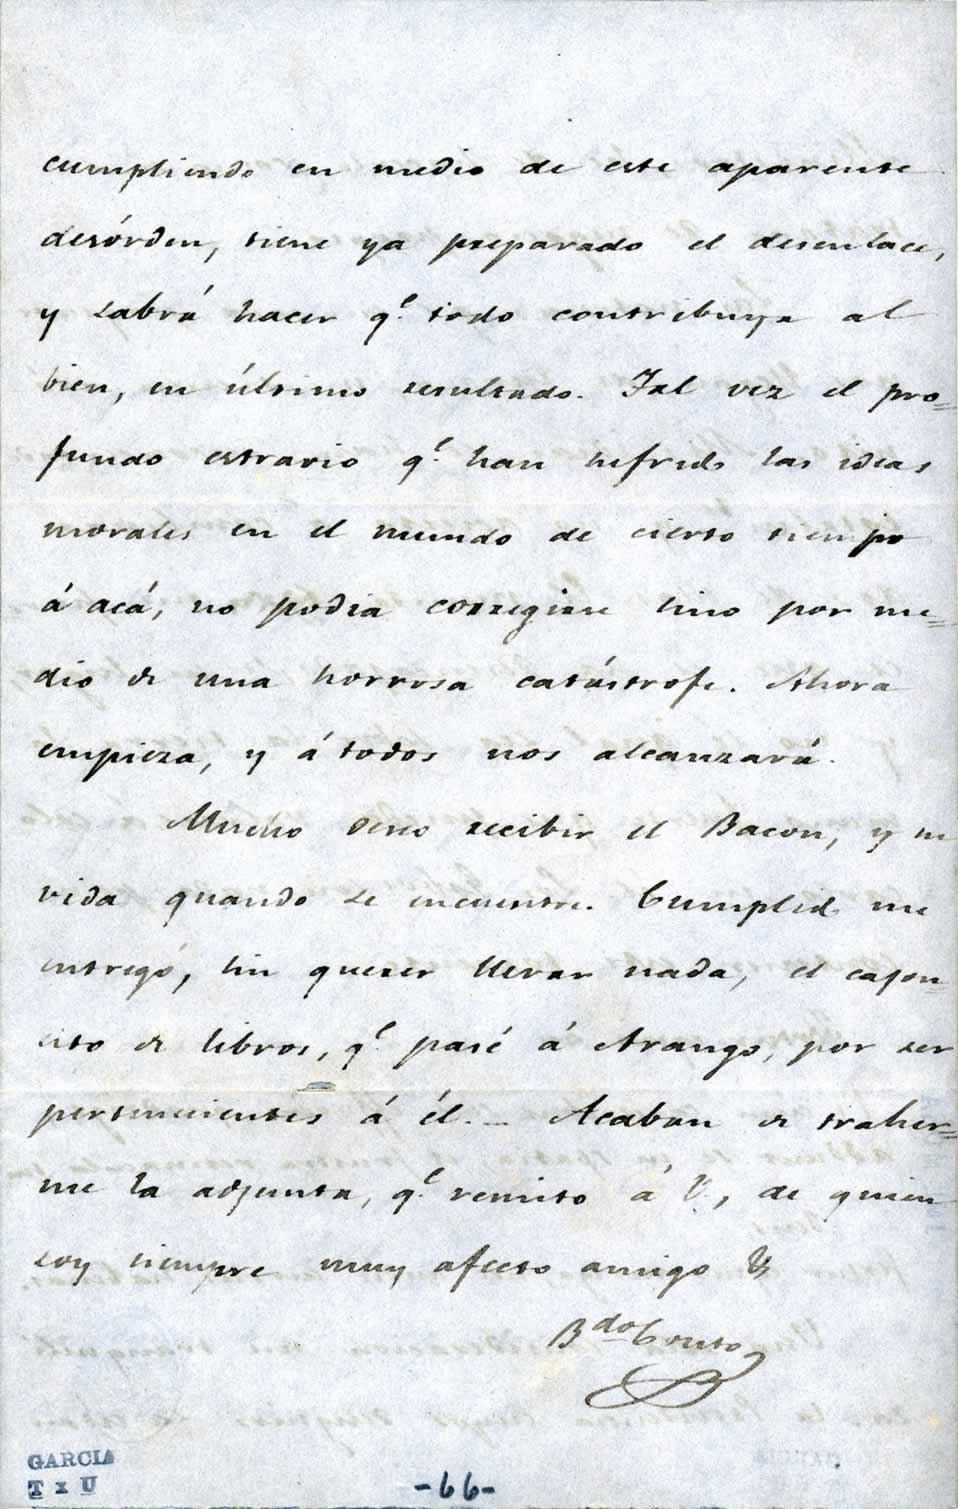 cumpliendo en medio de este aparente
desórden, tiene ya preparado el desenlace,
y sabrá hacer q.e todo contribuya al
bien, en último resultado. Tal vez el pro=
fundo estravio q.e han sufrido las ideas
morales en el mundo de cierto tiempo
á acá, no podia corregirse sino por me=
dio de una horrosa catástrofe. Ahora
empieza, y á todos nos alcanzará.
Mucho deseo recibir el Bacon, y su
vida quando se encuentre. Cumplido me
entregó, sin querer llevar nada, el cajon=
cito de libros, q.e pasé á Arango, por ser
pertenecientes á él. _ Acaban de traher=
me la adjunta, q.e remito á V., de quien
soy siempre muy afecto amigo &
B.do Couto
GARCIA
T x U
-66-